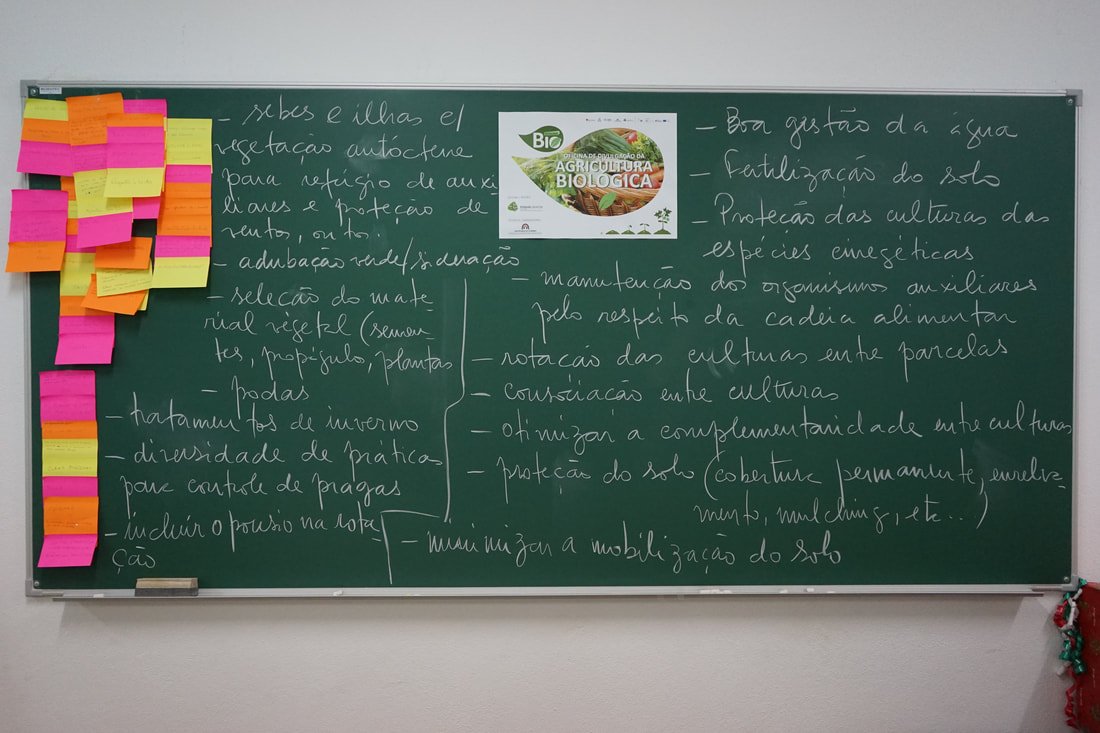 - sebes e ilhas c/
vegetação autóctene
para refúgio de auxi-
liares e proteção de
ventos, outos
- adubação verde/sideração
- seleção do mate
rial vegetal (semen-
tes, propágulo, plantas
- podas
- tratamentos de inverno
- diversidade de práticas
para controle de pragas
- incluir o pousio na rota-
ção
BIO
OFICINA DE DIVULGAÇÃO DA
AGRICULTURA
BIOLÓGICA
- Boa gestão da água
- Fertilização do solo
- Proteção das culturas das
espécies cinegéticas
- manutenção dos organismos auxiliares
pelo respeito da cadeia alimentar
- rotação das culturas entre parcelas
- consociação entre culturas
- otimizar a complementaridade entre culturas
- proteção do solo (cobertura permanente, enrelva-
mento, mulching, etc...)
- minimizar a mobilização do solo